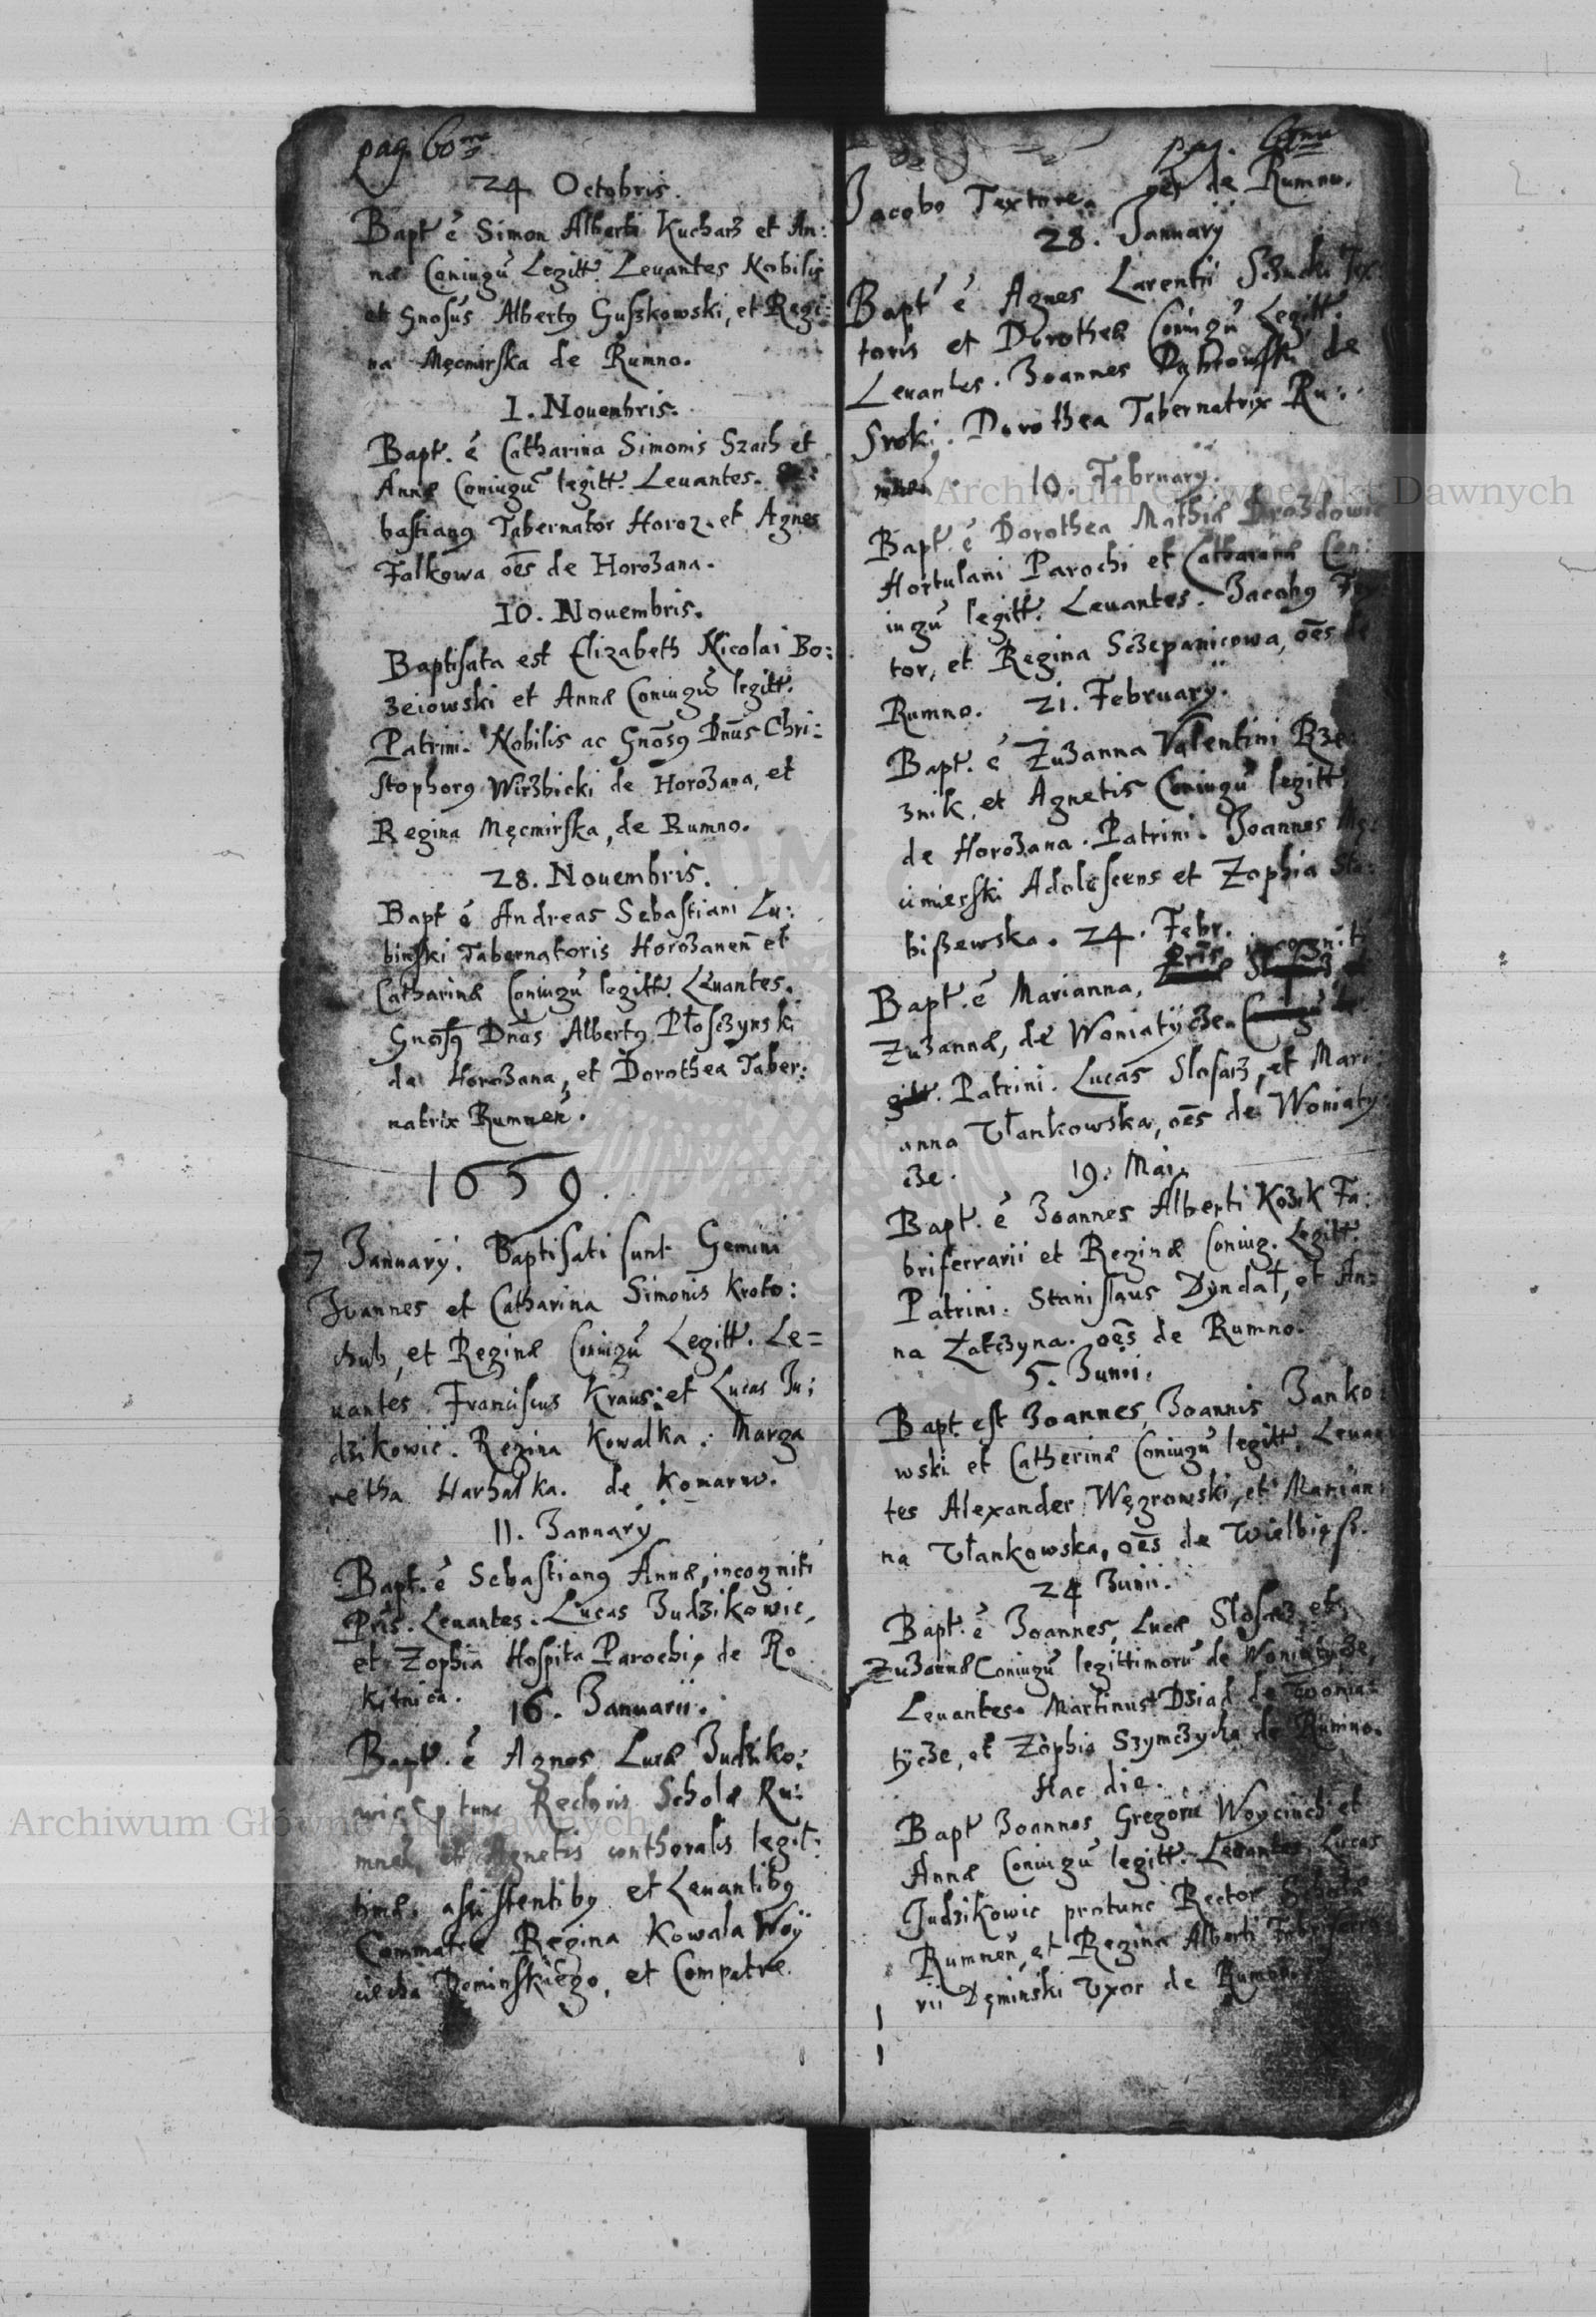 pag. 60
24 Octobris.
Bapt ē Simon Alberti Kucharz et An:
næ Coniugū Legitt. Leuantes Nobilis
et Gnosus Albertꝰ Guszkowski, et Regi:
na Męcmirska de Rumno.
1. Nouenbris.
Bapt. ē Catharina Simonis Szach et
Annæ Coniugū legitt. Leuantes. Se:
bastianꝰ Tabernator Horoz. et Agnes
Falkowa oēs de Horozana.
10. Nouembris.
Baptisata est Elizabeth Nicolai Bo:
zeiowski et Annæ Coniugū legitt.
Patrini. Nobilis ac Gnōsꝰ Dnūs Chri:
stophorꝰ Wirzbicki de Horozana, et
Regina Męcmirska, de Rumno.
28. Nouembris.
Bapt ē Andreas Sebastiani Lu:
binski Tabernatoris Horozaneñ et
Catharinæ Coniugū legitt. Leuantes.
Gnōsꝰ Dnūs Albertꝰ Płosczynski
de Horozana, et Dorothea Taber:
natrix Rumneñ.
1659.
7 Januarÿ. Baptisati sunt Gemini
Joannes et Catharina Simonis Kroto:
chub, et Reginæ Coniugū Legitt. Le=
uantes. Franciscus Kraus: et Lucas Ju:
dzikowic. Regina Kowalka. Marga
retha Harhalka. de Komarno.
11. Januarÿ
Bapt. ē Sebastianꝰ Annæ, incogniti
Pris. Leuantes. Lucas Judzikowic,
et Zophia Hospita Parochi, de Ro
kitnica.
16. Januarii.
Bapt. ē Agnes Lucæ Judziko:
wic p tunc Rectoris Scholæ Ru:
mneñ, et Agnetis conthoralis legit:
timæ, assistentibꝰ et Leuantibꝰ
Commatre Regina Kowala Woÿ
ciecha Deminskiego, et Compatre
pag.
Jacobo Textore. oēs de Rumno.
28. Januarÿ
Bapt ē Agnes Larentii Tex:
toris et Dorotheæ Coniugū Legitt.
Leuantes. Joannes de
Sroki. Dorothea Tabernatrix Ru:
mneñ.
10. Februarÿ.
Bapt. ē Dorothea Mathiæ Drozdowic
Hortulani Parochi et Catharinæ Con:
iugū legitt. Leuantes. Jacobꝰ Tex:
tor, et Regina Sczepanicowa, oēs de
Rumno. 21. Februarÿ.
Bapt. ē Zuzanna Valentini Rze:
znik, et Agnetis Coniugū legitt.
de Horozana. Patrini. Joannes Mę:
cimierski Adolescens et Zophia Sta:
biszewska. 24. Febr.
Pris incogniti
Bapt. ē Marianna, et
Zuzannæ, de Woniatÿcze. Coniugū le
gitt. Patrini. Lucas Slosarz, et Mari:
anna Vłankowska, oēs de Woniaty:
cze. 19. Mai.
Bapt. ē Joannes Alberti Kozik Fa:
briferrarii et Reginæ Coniug. Legitt.
Patrini. Stanislaus Dyndał, et An:
na Zatczyna. oēs de Rumno.
5. Junii.
Bapt est Joannes, Joannis Janko
wski et Catherinæ Coniugū legitt. Leuan
tes Alexander Węgrowski, et Marian:
na Vłankowska, oēs de Wielbiąsz.
24 Junii.
Bapt. ē Joannes, Lucæ Slosarz et
Zuzannæ Coniugū legittimorū de Woniatycze,
Leuantes. Martinus Dziad de Wonia:
tÿcze, et Zophia Szymczycha de Rumno.
Hac die.
Bapt Joannes Gregorii Woyciuch et
Annæ Coniugū legitt. Leuantes Lucas
Judzikowic protunc Rector Scholæ
Rumneñ, et Regina Alberti Fabriferra
rii Dęminski Vxor de Rumno.
Archiwum Główne Akt Dawnych
Archiwum Główne Akt Dawnych